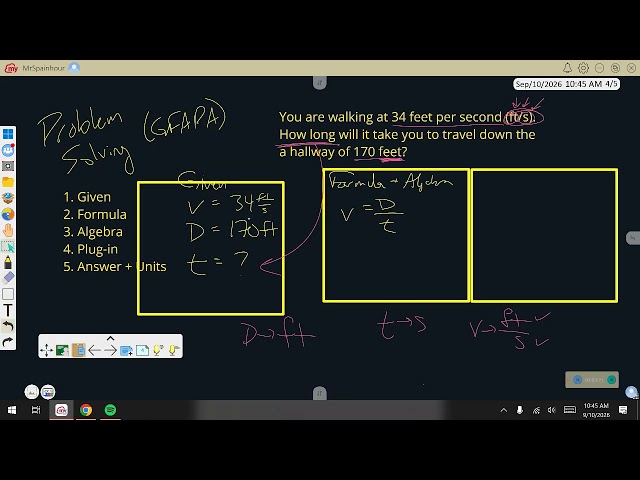 MrSpainhour
Sep/10/2026 10:45 AM 4/5
Problem (GFAPA)
Solving
You are walking at 34 feet per second (ft/s).
How long will it take you to travel down the
a hallway of 170 feet?
1. Given
2. Formula
3. Algebra
4. Plug-in
5. Answer + Units
Given
V = 34 ft/s
D = 170 ft
t = ?
Formula + Algebra
V = D/t
D→ft
t→s
V→ft/s
T
10:45 AM
9/10/2026